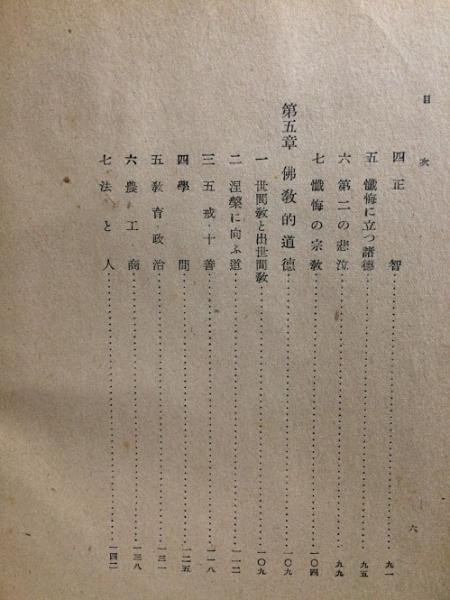 目次
四 正智 九一
五 懺悔に立つ諸德 九五
六 第二の悲泣 九九
七 懺悔の宗敎 一〇四
第五章 佛敎的道德 一〇九
一 世間敎と出世間敎 一〇九
二 涅槃に向ふ道 一一二
三 五戒・十善 一一八
四 學問 一二五
五 敎育・政治 一三一
六 農工商 一三八
七 法と人 一四二
六